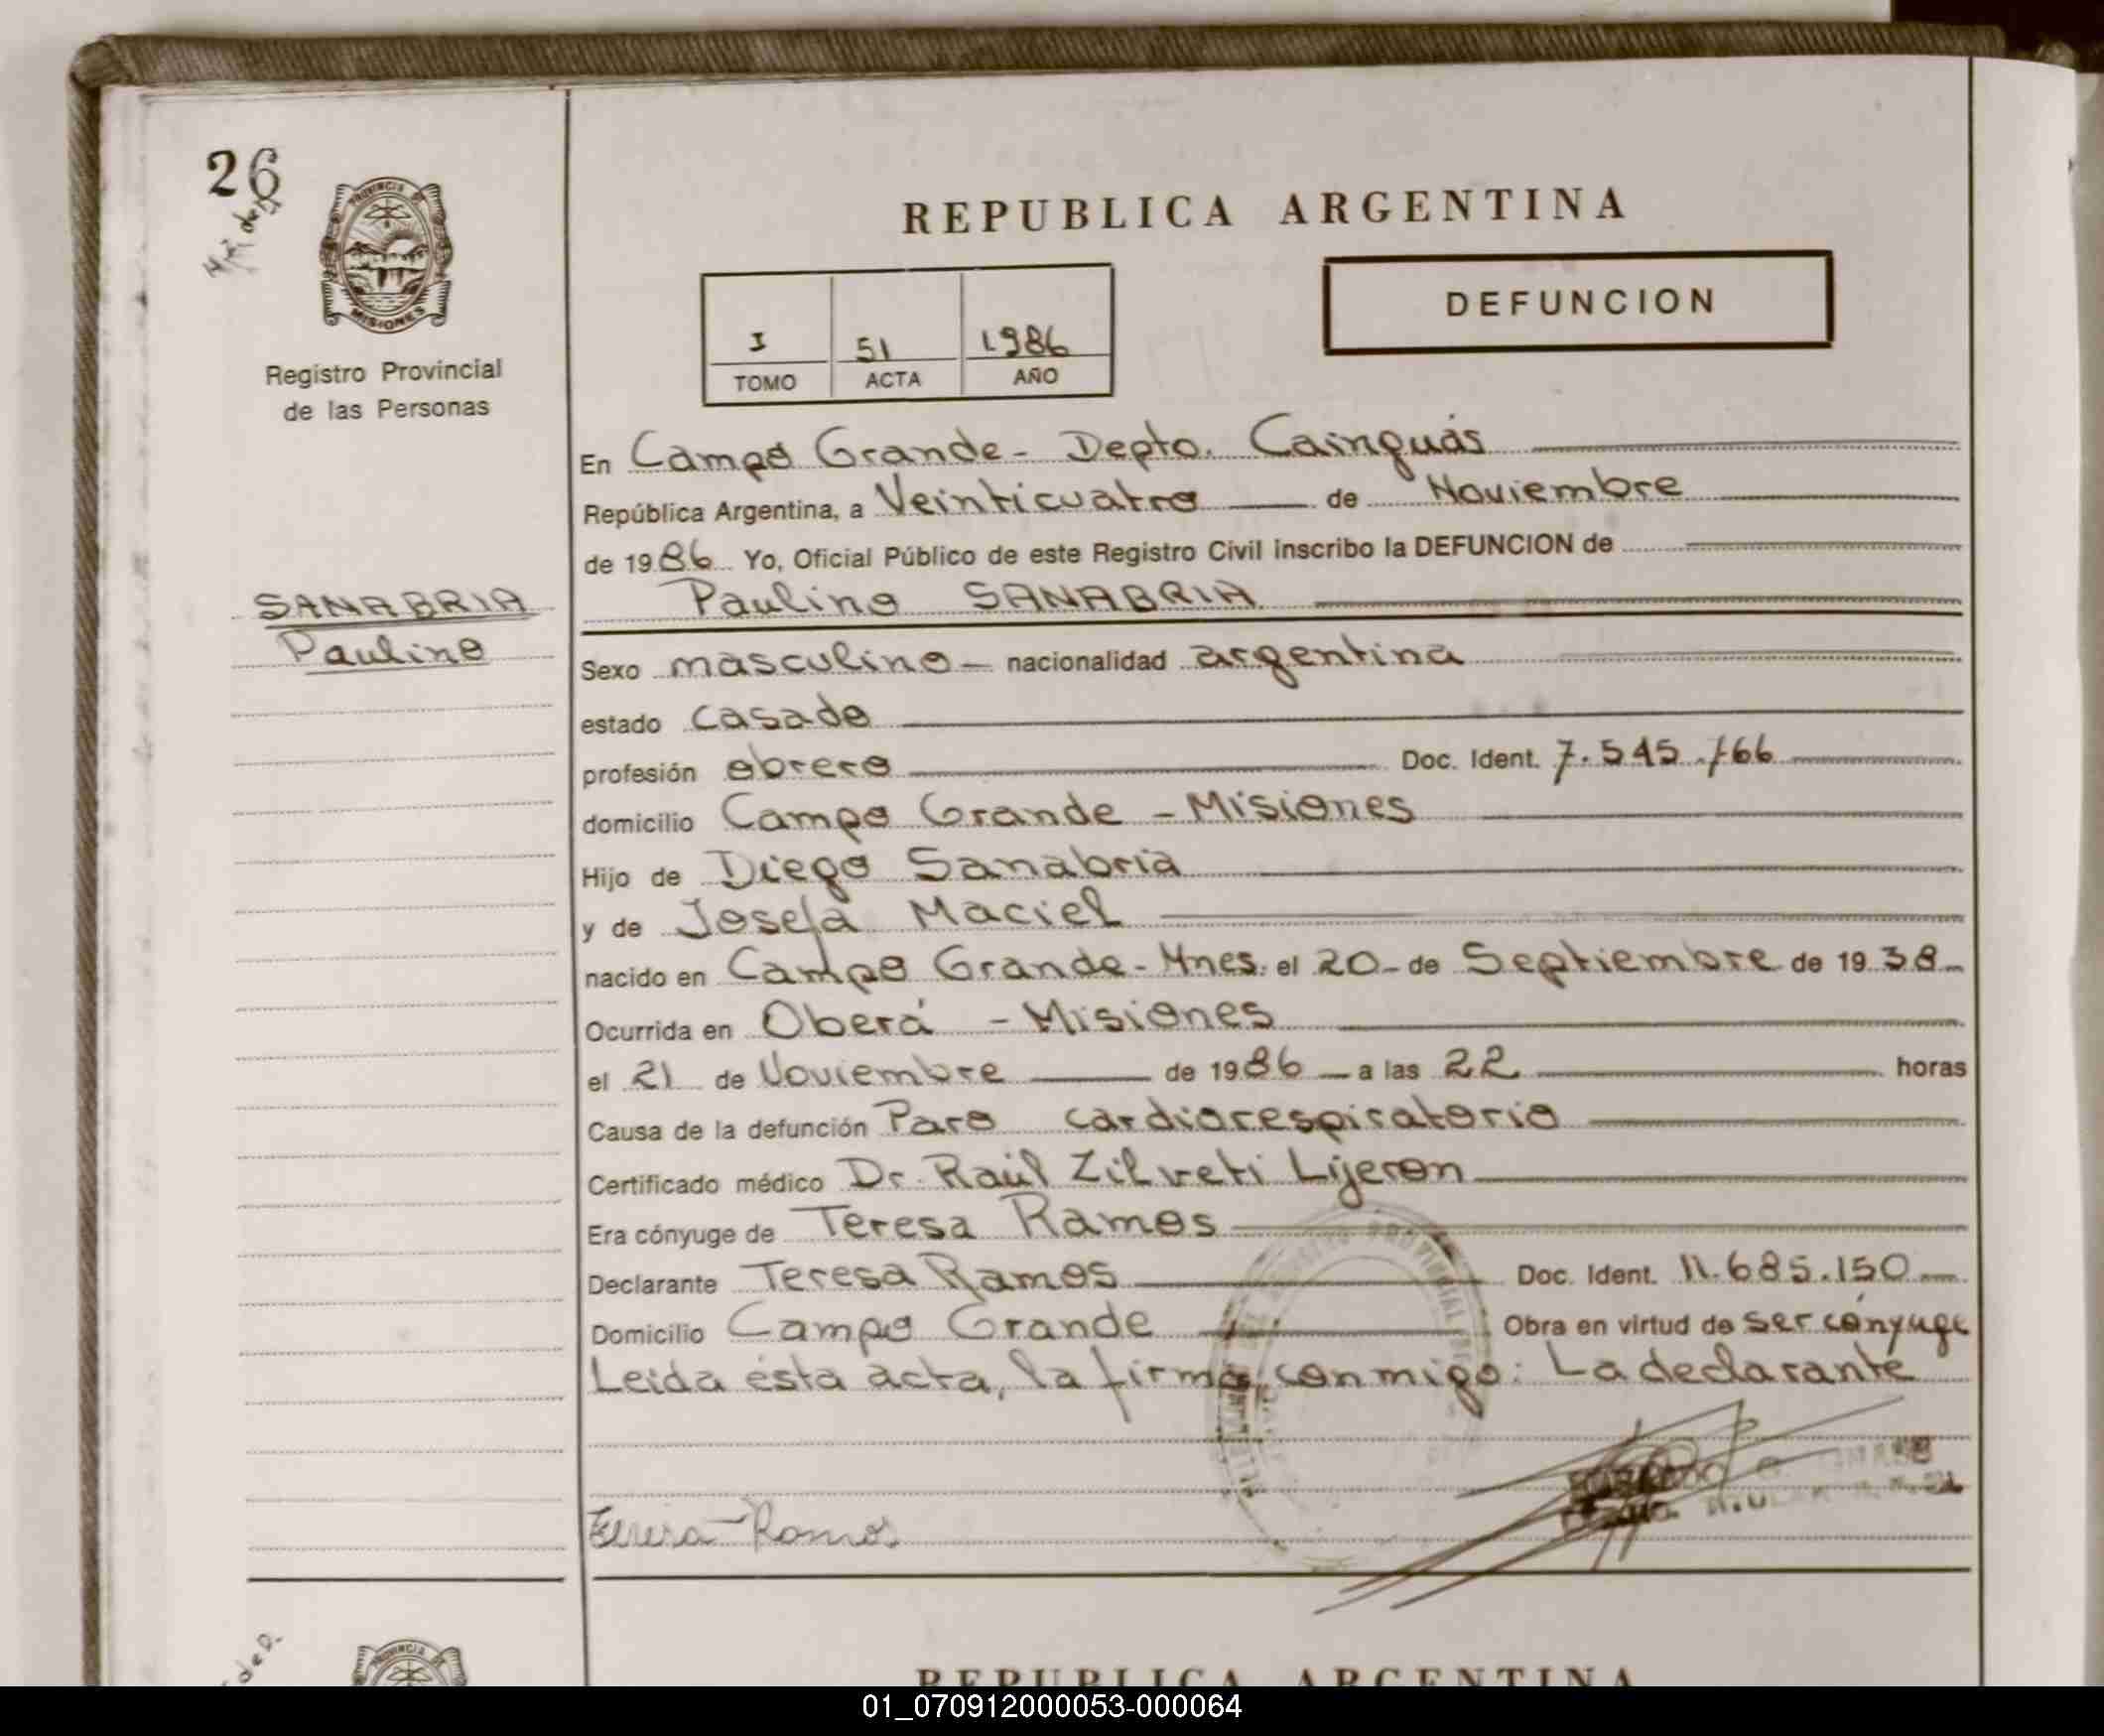 26
PROVINCIA DE
MISIONES
Registro Provincial
de las Personas
SANABRIA
Paulino
REPUBLICA ARGENTINA
DEFUNCION
I 51 1986
TOMO ACTA AÑO
En Campo Grande - Depto. Cainguás
República Argentina, a Veinticuatro de Noviembre
de 1986 Yo, Oficial Público de este Registro Civil inscribo la DEFUNCION de
Paulino SANABRIA
Sexo masculino - nacionalidad argentina
estado casado
profesión obrero Doc. Ident. 7.545.766
domicilio Campo Grande - Misiones
Hijo de Diego Sanabria
y de Josefa Maciel
nacido en Campo Grande - Mnes. el 20 - de Septiembre de 1938
Ocurrida en Oberá - Misiones
el 21 de Noviembre de 1986 a las 22 horas
Causa de la defunción Paro cardiorespiratorio
Certificado médico Dr. Raúl Zilveti Lijeron
Era cónyuge de Teresa Ramos
Declarante Teresa Ramos Doc. Ident. 11.685.150
Domicilio Campo Grande Obra en virtud de ser cónyuge
Leida ésta acta, la firma conmigo: La declarante
Teresa Ramos
REPUBLICA ARGENTINA
01_070912000053-000064